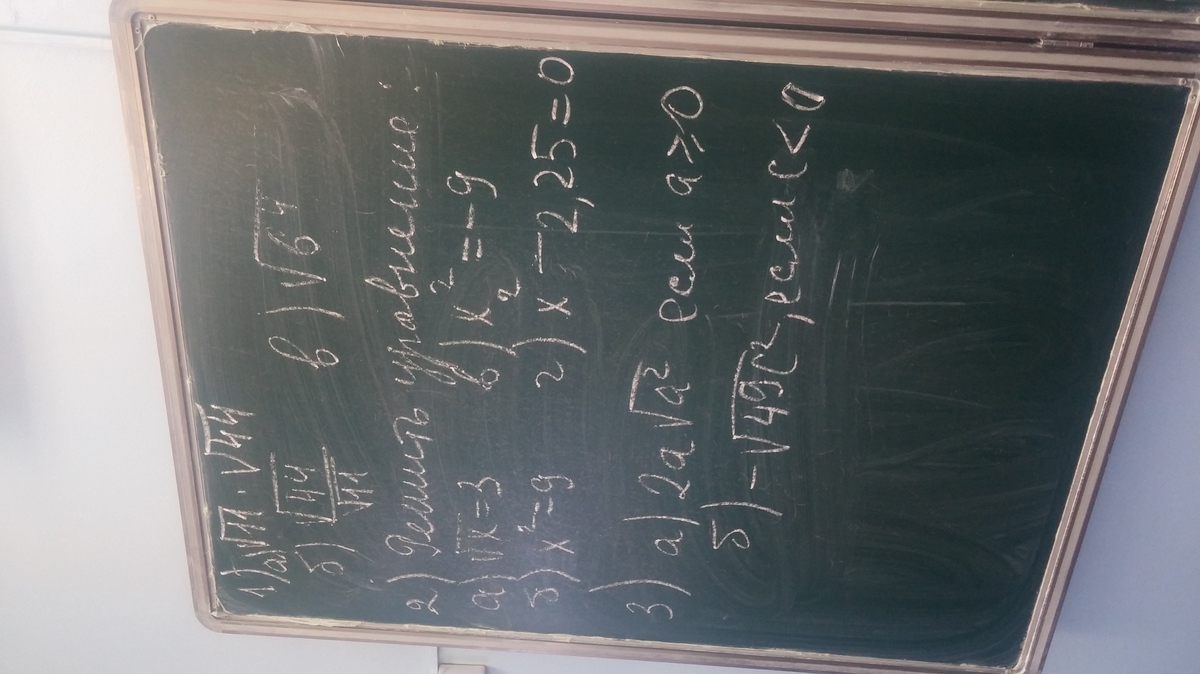 1) а) √11 · √44
б) √44/√11 в) √64
2) Решить уравнение:
а) √x=3 в) x²=-9
б) x²=9 г) x²-2,25=0
3) а) 2a√a² если a≥0
б) -√49c², если c<0